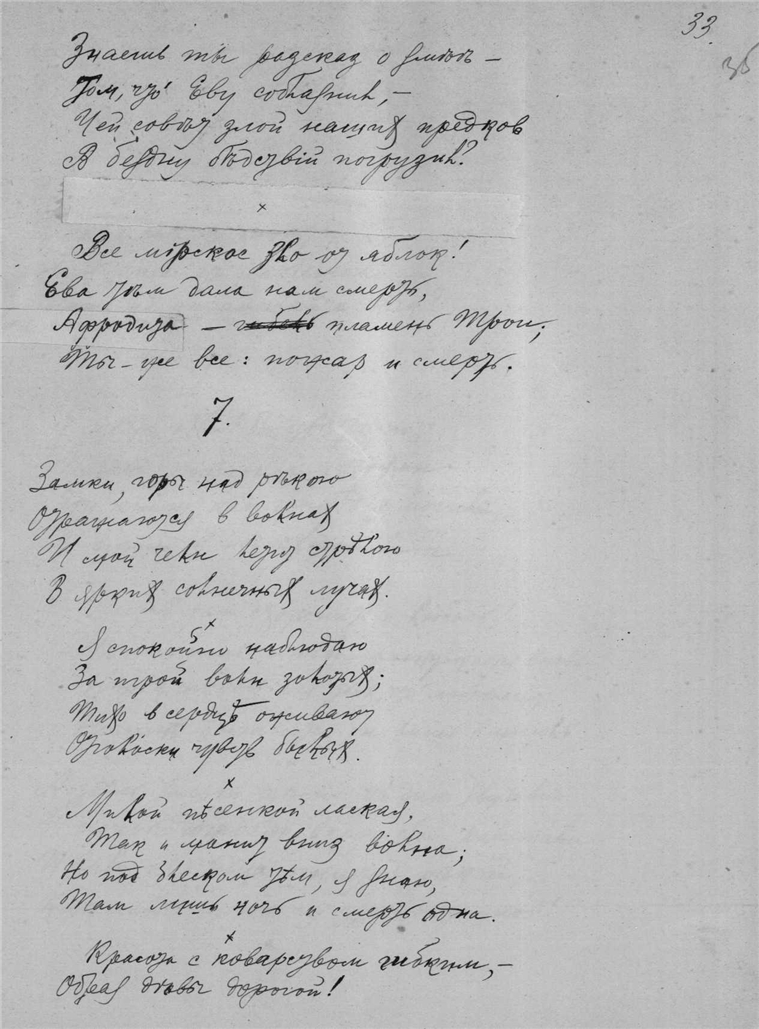 33
35
Знаешь ты рассказ о змѣѣ —
Том, что Еву соблазнил, —
Чей совѣт злой наших предков
В бездну бѣдствій погрузил?
×
Все мірское зло от яблок!
Ева тѣм дала нам смерть,
Афродита — гибель пламень Трои;
Ты-же все: пожар и смерть.
7.
Замки, горы над рѣкою
Отражаются в волнах
И мой челн летит стрѣлою
В ярких солнечных лучах.
×
Я спокойно наблюдаю
За игрой волн золотых;
Тихо в сердцѣ оживают
Отголоски чувств былых.
×
Милой пѣсенкой лаская,
Так и манит вниз волна;
Но под блеском тѣм, я знаю,
Там лишь ночь и смерть одна.
×
Красота с коварством гибким, —
Образ дѣвы дорогой!